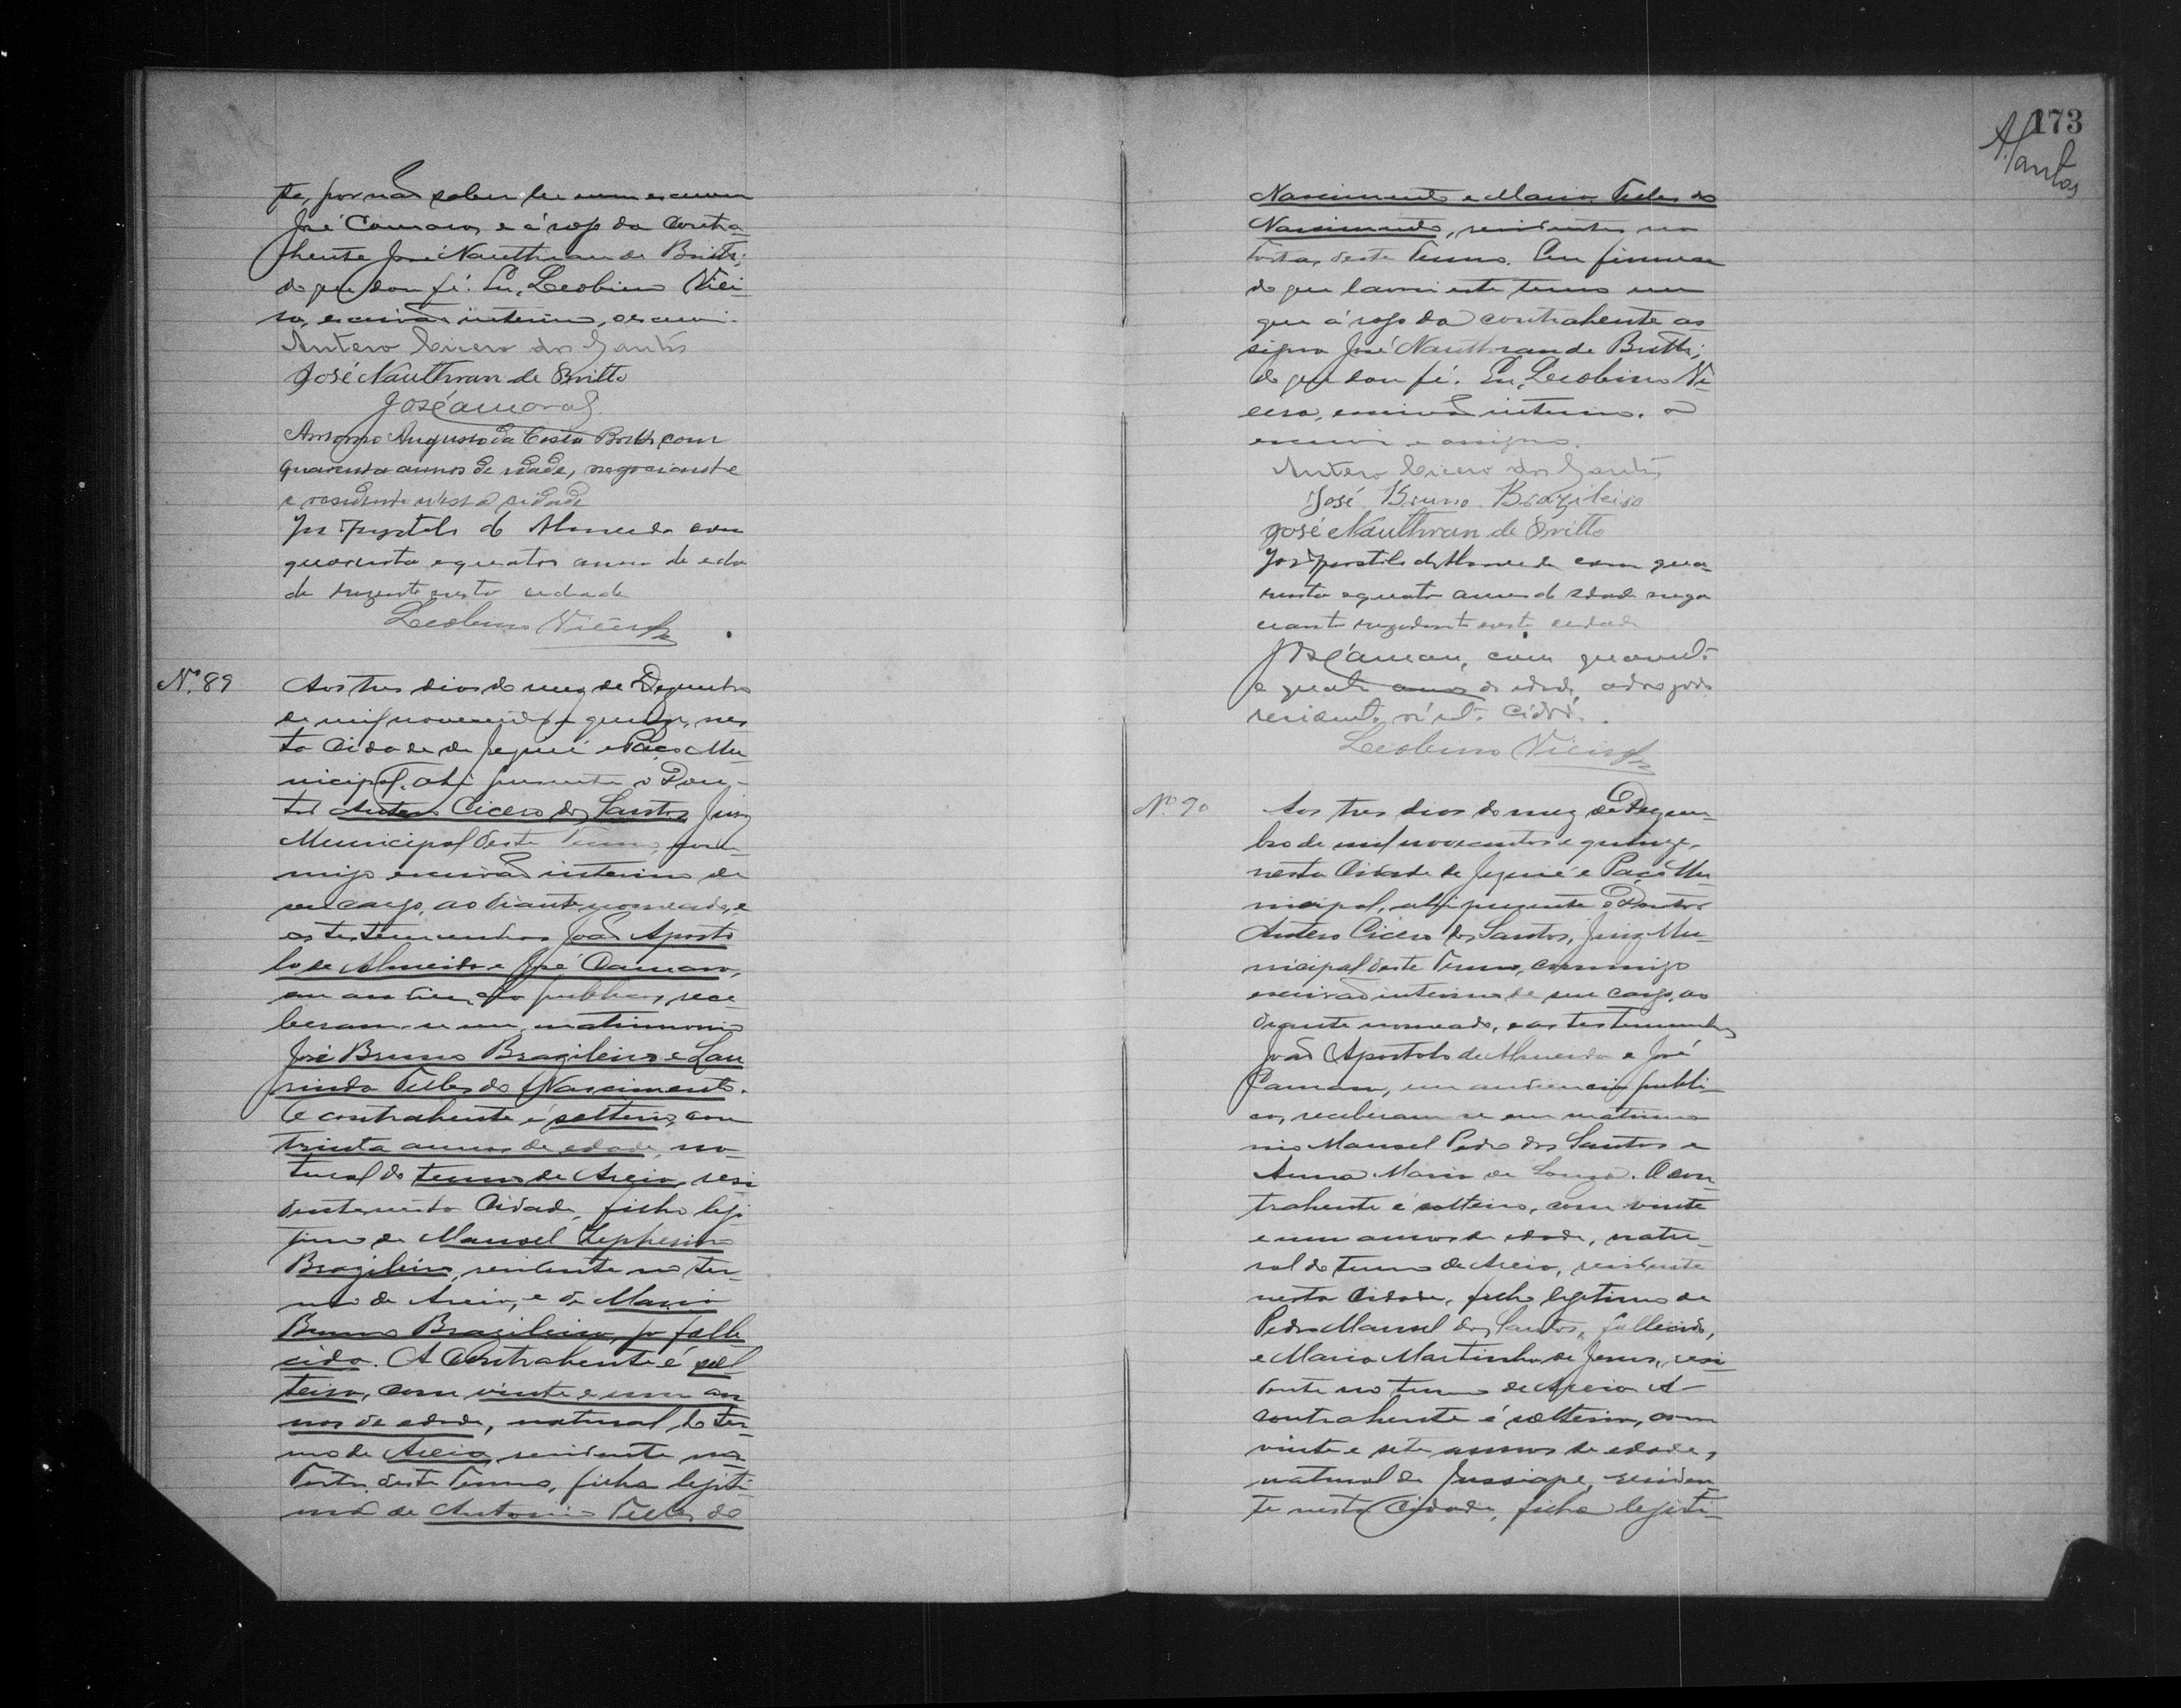 te, por não saber ler nem escrever
José Camaro, e á rogo da contra-
hente José Nauthwan de Britto;
do que dou fé. Eu, Leobino Viei-
ra, escrivão interino, escrevi.
Antero Cicero dos Santos
José Nauthwan de Britto
José amaral
Antonio Augusto da Costa Britto, com
quarenta annos de idade, negociante
e residente nesta cidade
de Almeida com
quarenta e quatro annos de eda
de rezidente nesta cidade
Leobino Vieira
Nº 89
Aos tres dias do mez de Dezembro
de mil novecentos e quinze, nes
ta Cidade de Jequié e Paço Mu
nicipal, ahi presente o Dou-
tor Antero Cicero dos Santos, Juiz
Municipal deste Termo, com-
migo escrivão interino de
seu cargo, ao diante nomeado, e
as testemunhas João Aposto
lo de Almeida e José Camaro,
em audiencia publica, rece
beram-se em matrimonio
José Bruno Brazileiro e Lau
rinda Telles do Nascimento.
O contrahente é solteiro, com
trinta annos de edade, na-
tural do termo de Areia, resi
dente nesta Cidade, filho legi
timo de Manoel Zepherino
Brazileiro, residente no ter-
mo de Areia, e de Maria
Bruno Brazileiro, ja falle
cida. A Contrahente é sol
teira, com vinte e um an
nos de edade, natural do ter-
mo de Areia, residente na
deste Termo, filha legiti
ma de Antonio Telles do
173
ASantos
Nascimento e Maria Telles do
Nascimento, residentes na
deste Termo. Em firmeza
do que lavrei este termo em
que á rogo da contrahente as
signa José Nauthwan de Britto;
do que dou fé. Eu, Leobino Vi
eira, escrivão interino, o
escrevi e assigno.
Antero Cicero dos Santos
José Bruno Brazileiro
José Nauthwan de Britto
de Almeida com qua
renta e quatro annos de edade nego
ciante rezidente nesta cidade
José amaral, com quarenta
e quatro anos de edade,
residente n'esta cidade.
Leobino Vieira
Nº 90
Aos tres dias do mez de Dezem-
bro de mil novecentos e quinze,
nesta Cidade de Jequié e Paço Mu-
nicipal, ahi presente o Doutor
Antero Cicero dos Santos, Juiz Mu-
nicipal deste Termo, commigo
escrivão interino de seu cargo, ao
diante nomeado, e as testemunhas
João Apostolo de Almeida e José
Camaro, em audiencia publi-
ca, receberam-se em matrimo
nio Manoel Pedro dos Santos e
Anna Maria de Souza. O con-
trahente é solteiro, com vinte
e um annos de edade, natu-
ral do termo de Areia, residente
nesta Cidade, filho legitimo de
Pedro Manoel dos Santos, fallecido,
e Maria Martinha de Jesus, resi
dente no termo de Areia. A
contrahente é solteira, com
vinte e sete annos de edade,
natural de Jussiape, residen
te nesta Cidade, filha legiti-